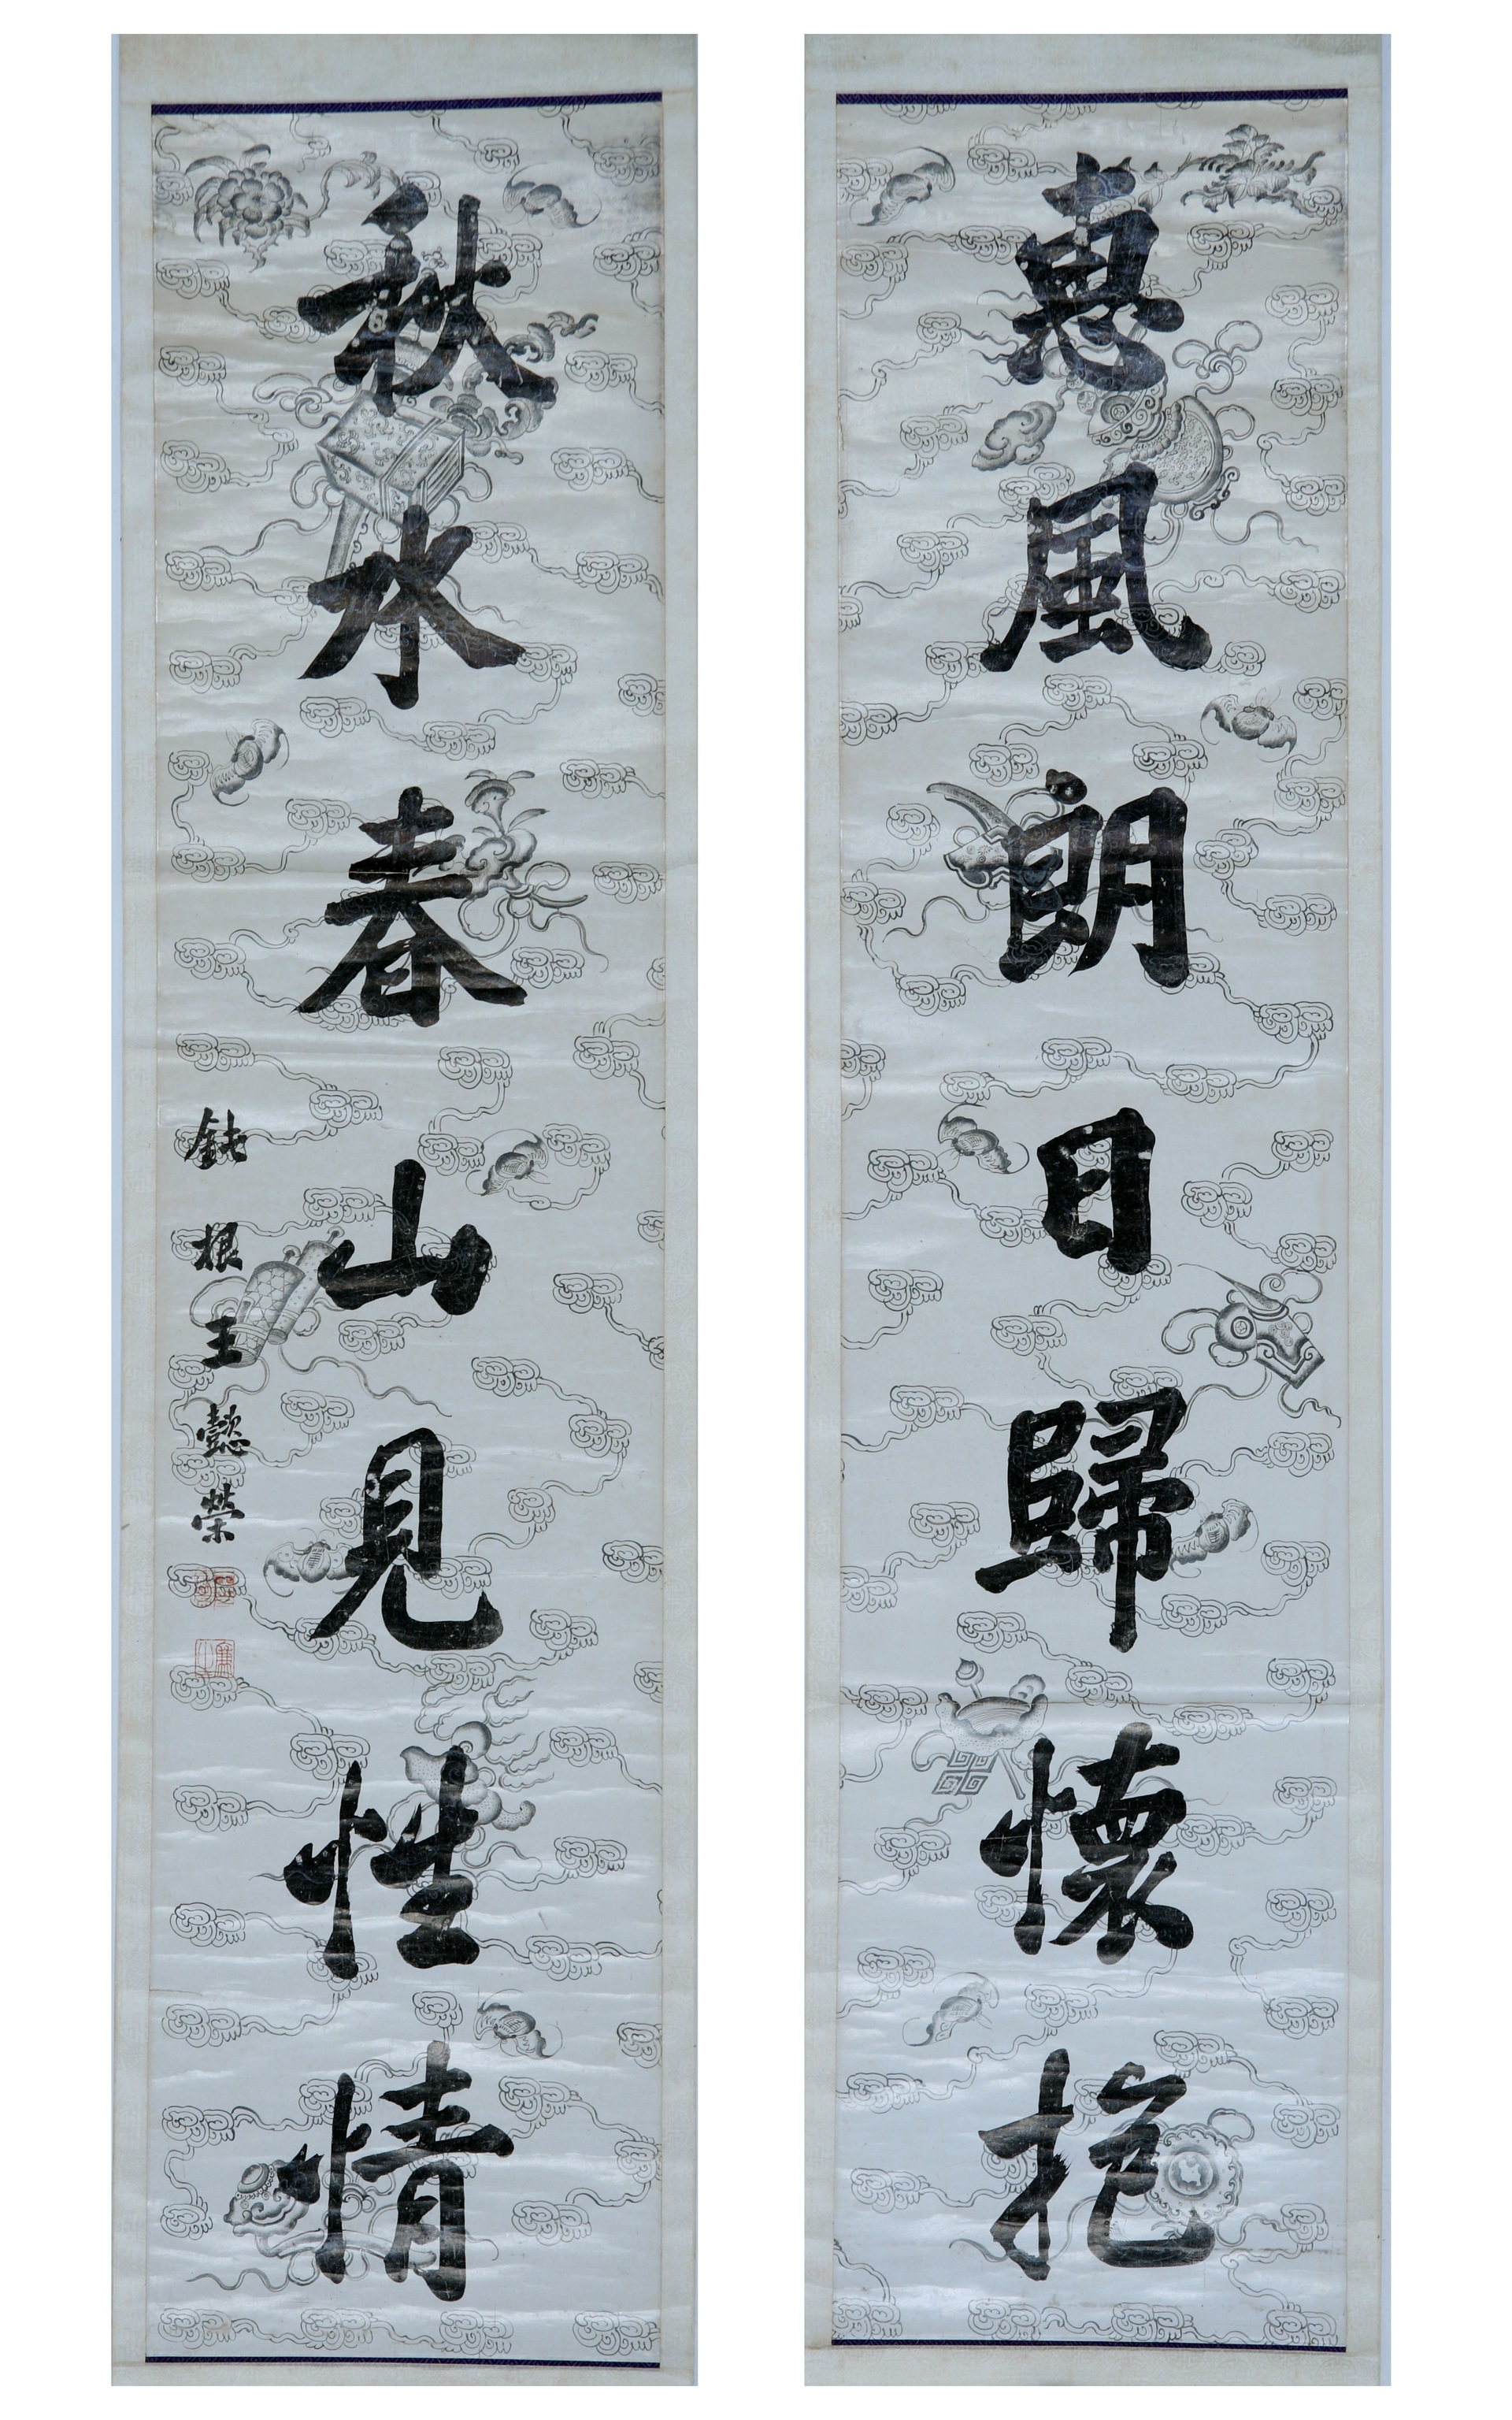 惠風朗日歸懷抱
秋水春山見性情
鉢根王懿榮